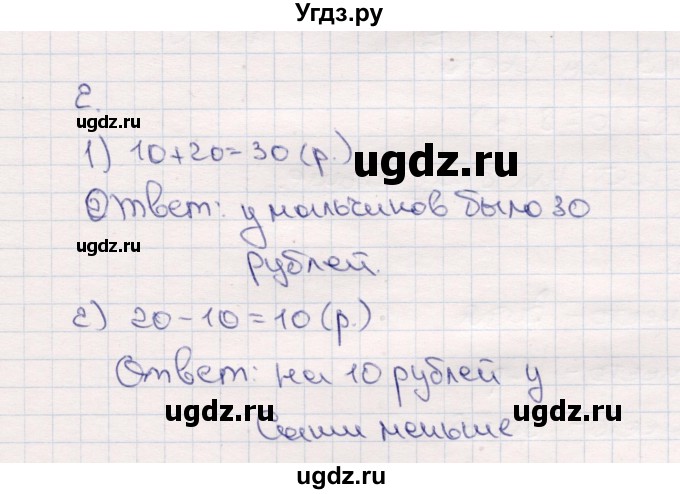 Угдз.ру
2.
ugdz.ru
1) 10+20=30 (р.)
ugdz.ru
Ответ: у мальчиков было 30
ugdz.ru
рублей.
2) 20-10=10 (р.)
ugdz.ru
Ответ: на 10 рублей у
ugdz.ru
ugdz.ru
Саши меньше
ugdz.ru